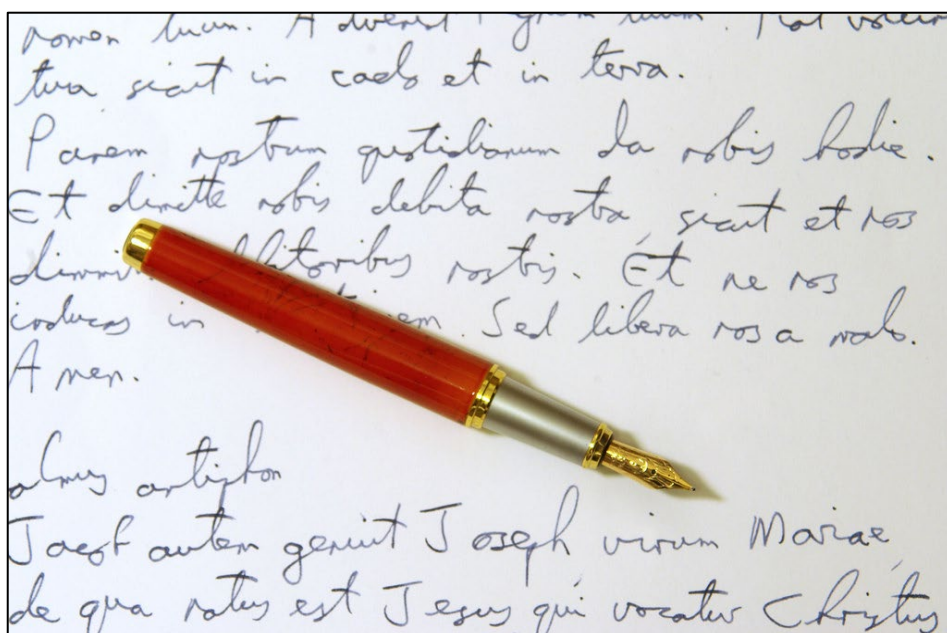 nomen tuum. Advenit regnum tuum. Fiat volun
tua sicut in caelo et in terra.
Panem nostrum quotidianum da nobis hodie.
Et dimitte nobis debita nostra, sicut et nos
dimmi debitoribus nostris. Et ne nos
inducas in em. Sed libera nos a malo.
Amen.
almus antiphon
Jacob autem genuit Joseph, virum Mariae,
de qua natus est Jesus qui vocatur Christus